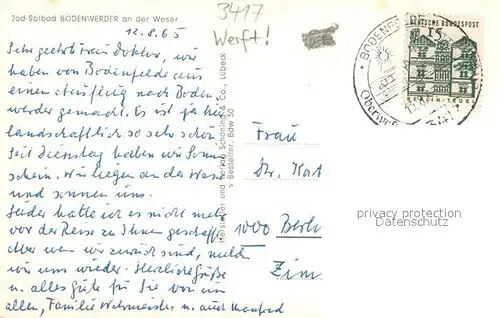 Jod-Solbad BODENWERDER an der Weser
3417
Werft!
12.8.65
Sehr geehrte Frau Doktor, wir
haben von Bodenfelde aus
einen Ausflug nach Boden
werder gemacht. Es ist ja hier
landschaftlich so sehr schön
Seit Dienstag haben wir Sonn
schein. Wir liegen an der Weser
und sonnen uns.
Leider hatte ich es nicht mehr
vor der Reise zu Ihnen geschafft
Aber wenn wir zurück sind, melden
wir uns wieder. Herzliche Grüße
u. alles Gute für Sie von uns
allen, Familie Wehmeister u. auch Manfred
Hersteller und Verlag Schöning & Co., Lübeck
Bestellnr. Bdw 50
Frau
Dr.
1000 Berlin
DEUTSCHE BUNDESPOST
15
BERLIN-TEGEL
BODENFELDE
Oberweser
privacy protection
Datenschutz